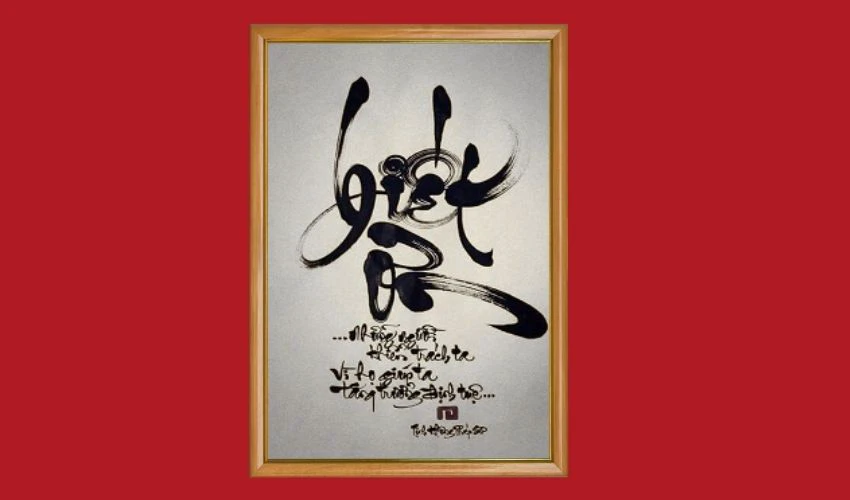 biết
Ơn
...Những người
khiển trách ta
Vì họ giúp ta
tăng trưởng định tuệ...